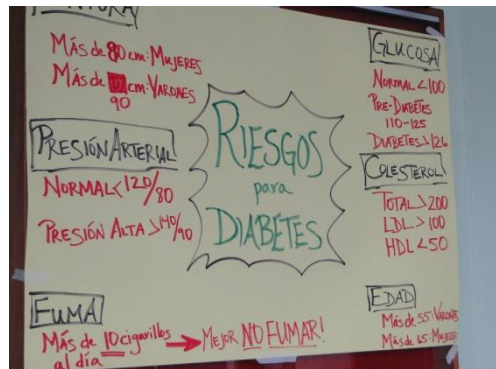 Más de 80 cm: Mujeres
Más de cm: Varones
90
Presión Arterial
Normal < 120/80
Presión Alta > 140/90
Fuma
Más de 10 cigarillos al día → Mejor NO FUMAR!
Riesgos
para
Diabetes
Glucosa
Normal < 100
Pre-Diabetes
110-125
Diabetes > 126
Colesterol
Total > 200
LDL > 100
HDL < 50
Edad
Más de 55: Varones
Más de 65: Mujeres